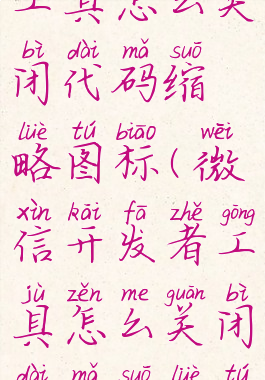 工具怎么关
bì dài mǎ suō
闭代码缩
lüè tú biāo wēi
略图标(微
xìn kāi fā zhě gōng
信开发者工
jù zěn me guān bì
具怎么关闭
dài mǎ suō lüè tú